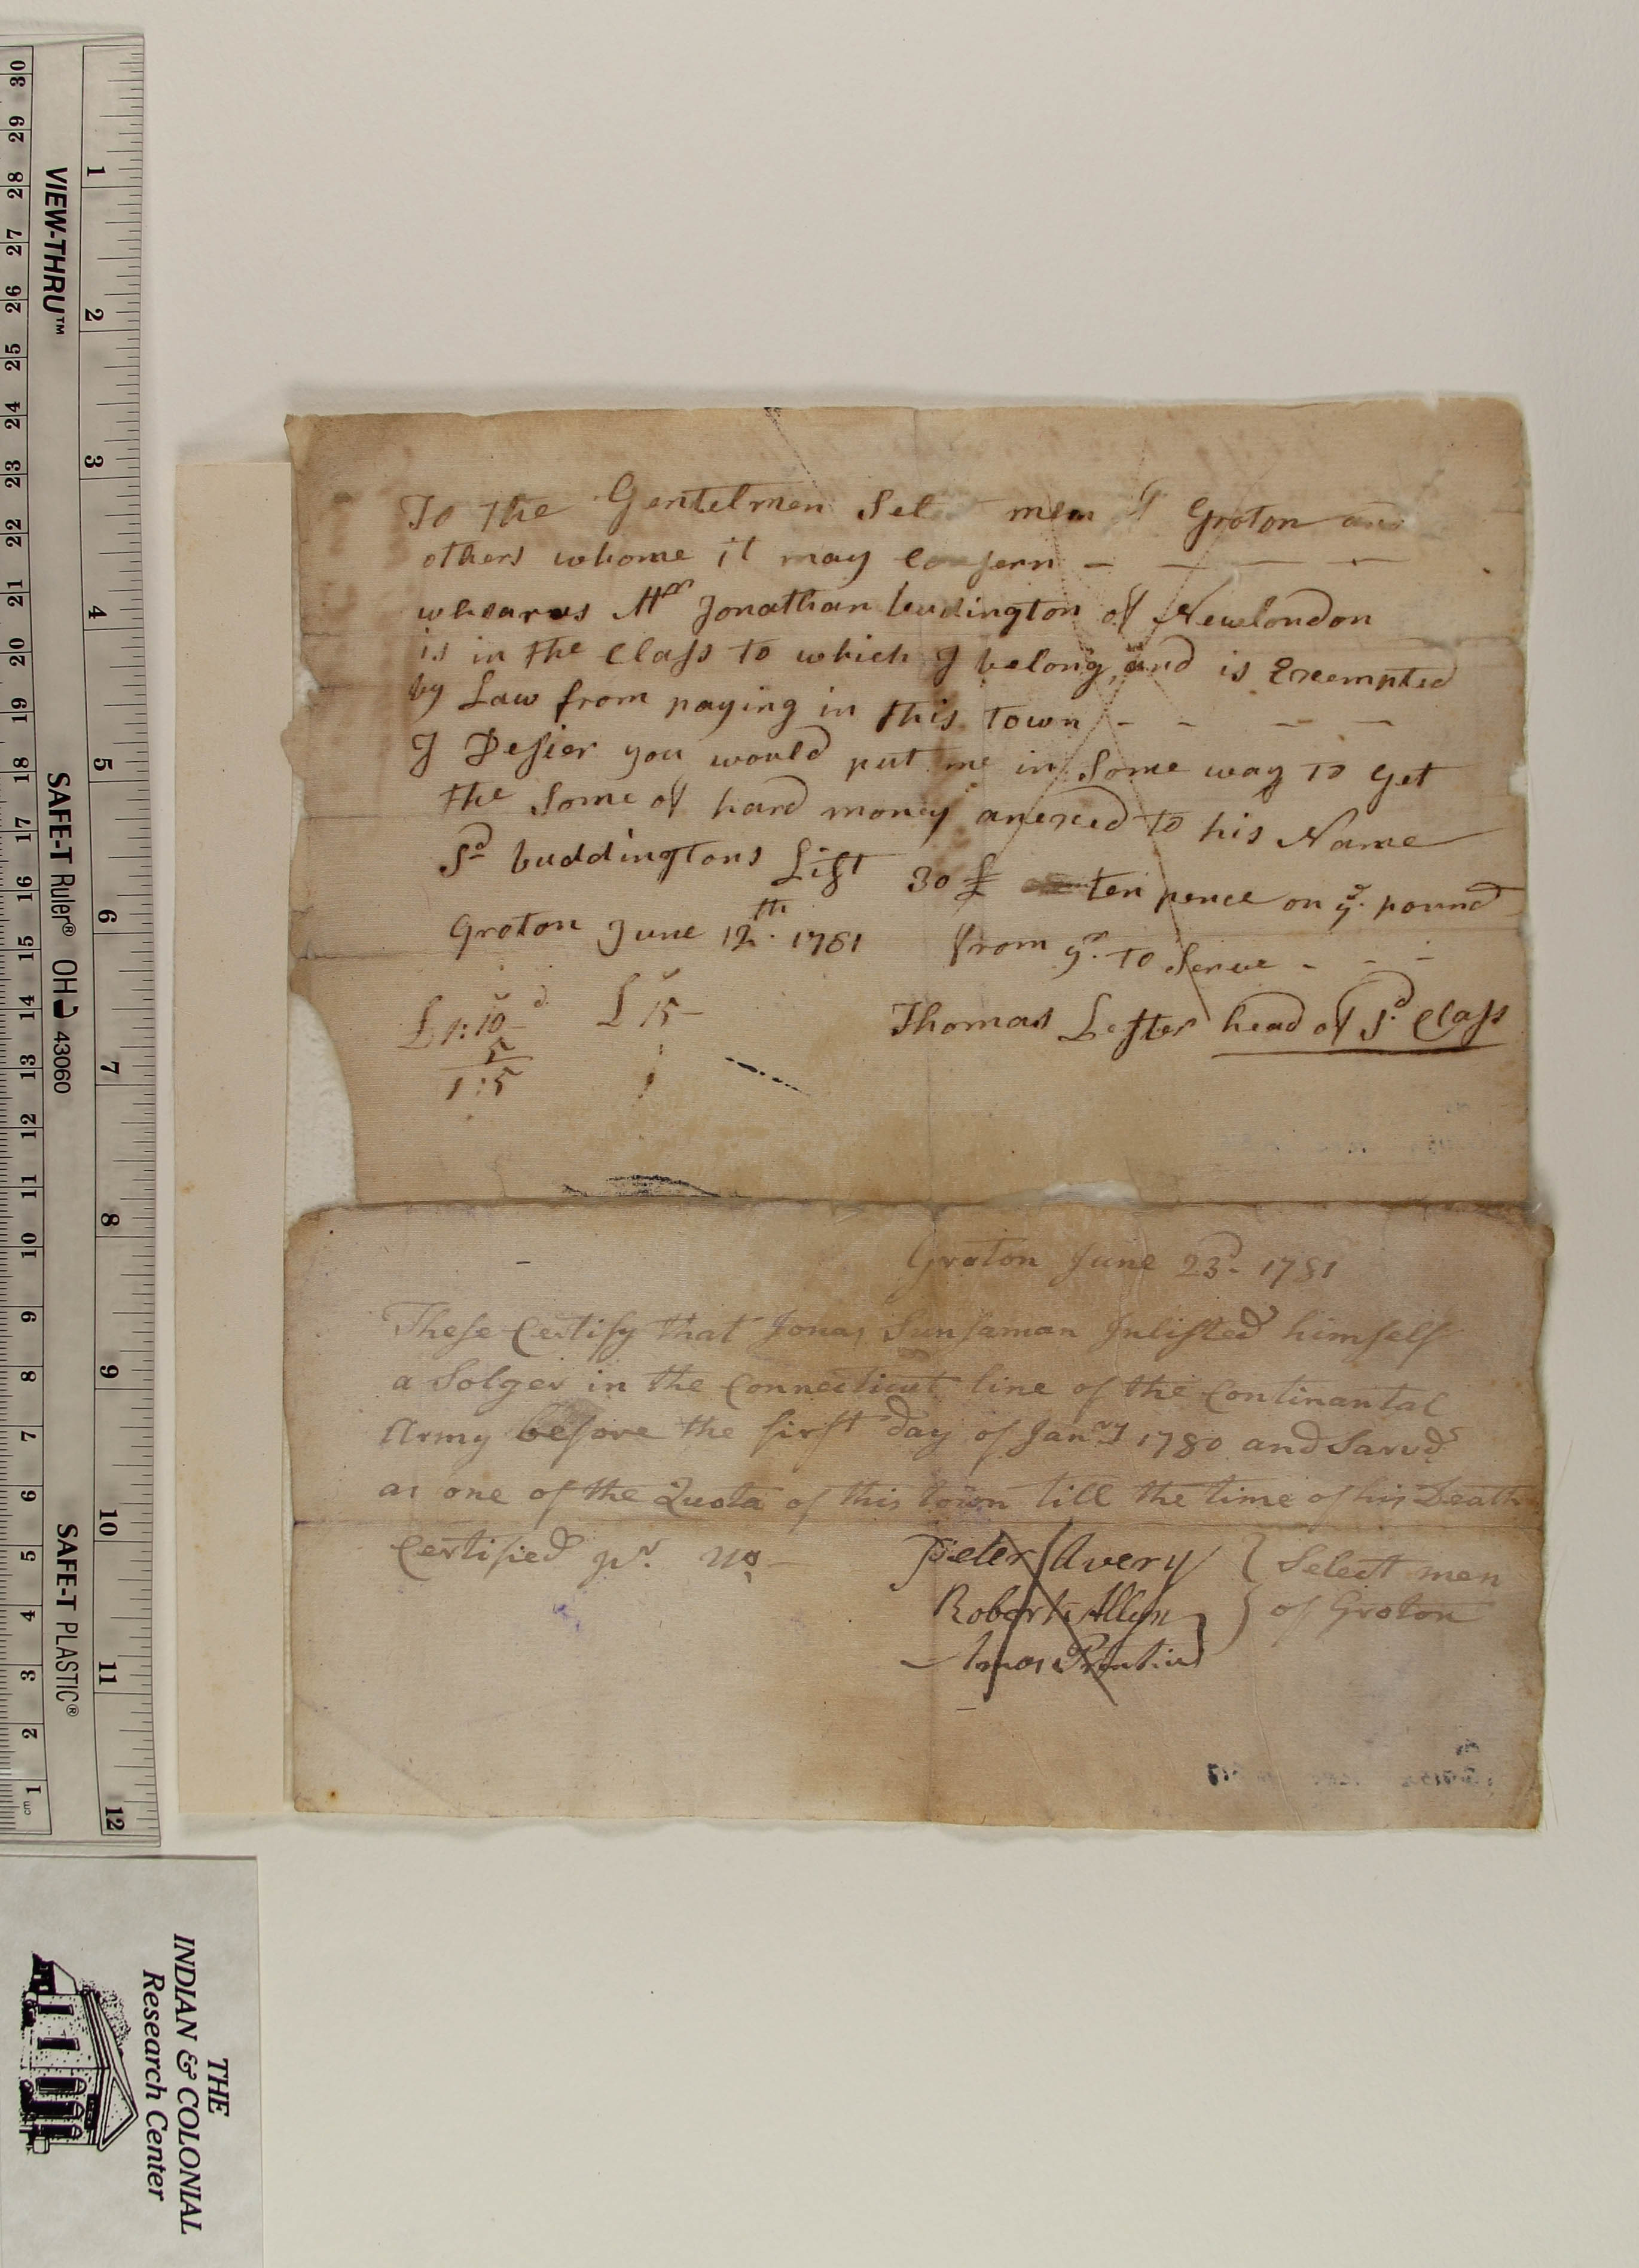 To the Gentelmen Sel men of Groton and
others whome it may Consern
whearas Mr Jonathan budington of Newlondon
is in the Class to which I belong, and is Exempted
by Law from paying in this Town
I Desier you would put me in Some way to get
the Some of hard money anexed to his Name
Sd buddingtons List 30 £ ten pence on ye pound
Groton June 12th 1781 from yr to Serve
Thomas Lester head of Sd Class
£1:10
5
1:5
£ 15
Groton June 23d 1781
These Certify that Jonas Sunsaman Inlisted himself
a Solger in the Connecticut line of the Continantal
Army before the first day of Janry 1780 and Sarvd
as one of the Quota of this town till the time of his Death
Certified pr us
Peter Avery
Robert Allyn
Amos Prentice
Select men
of Groton
VIEW-THRU™
SAFE-T Ruler® OH 43060
SAFE-T PLASTIC®
1 2 3 4 5 6 7 8 9 10 11 12
30 29 28 27 26 25 24 23 22 21 20 19 18 17 16 15 14 13 12 11 10 9 8 7 6 5 4 3 2 1
THE
INDIAN & COLONIAL
Research Center